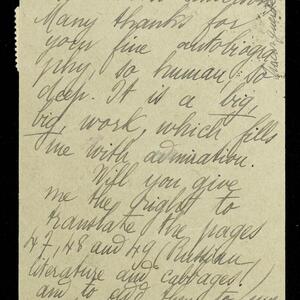 Many thanks for
your fine autobiogra
phy, so human so
deep. It is a big,
big, work, which fills
me with admiration.
Will you give
me the right to
translate the pages
47, 48 and 49 (Russian
literature and cabbages!
and to